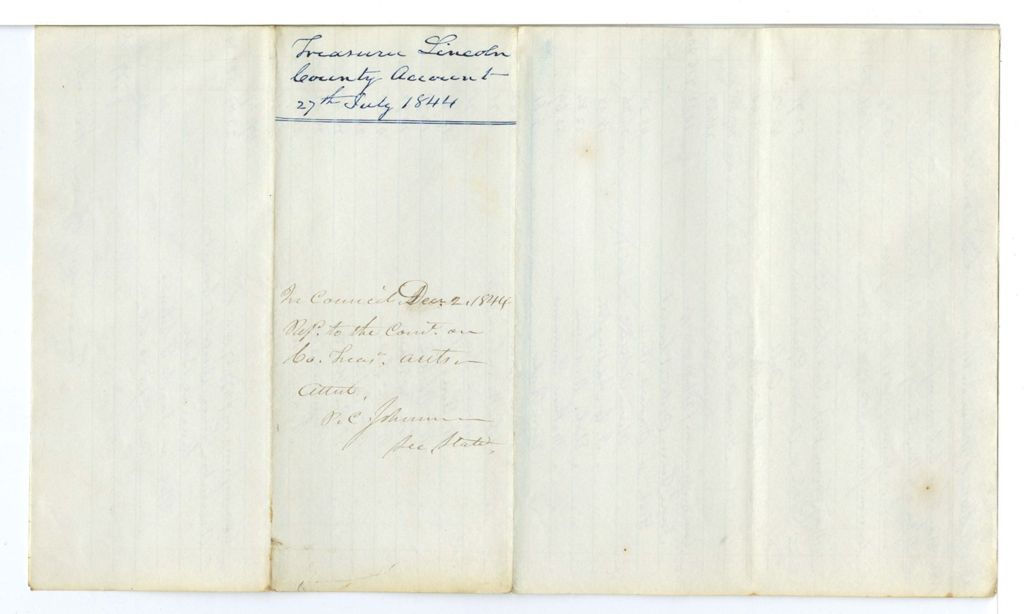 Treasurer Lincoln
County Account
27th July 1844
In Council Dec. 2. 1844
Ref. to the Comt. on
Co. Treas. accts.
Attest,
P. C. Johnson
Sec State,